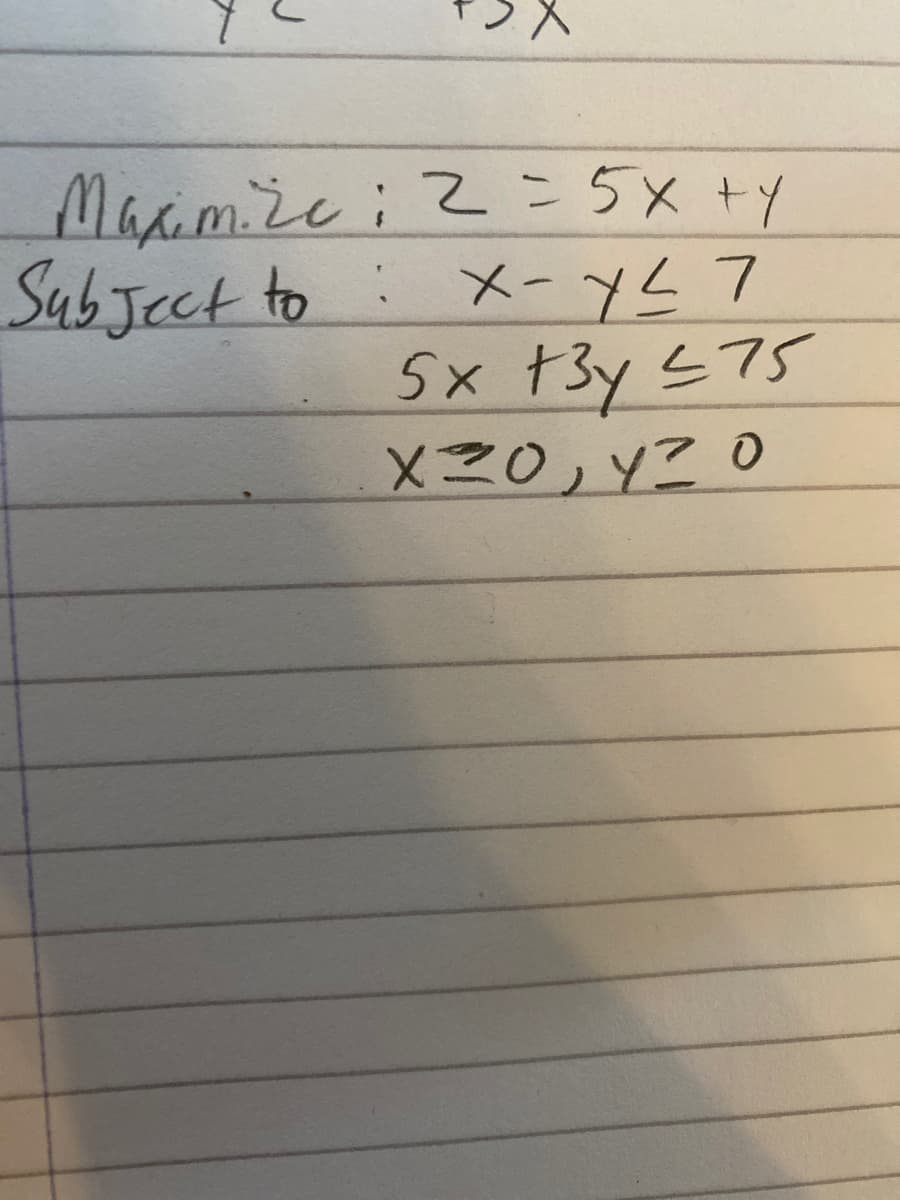 Maximize; Z = 5x + y
Subject to : x - y ≤ 7
5x + 3y ≤ 75
x ≥ 0, y ≥ 0